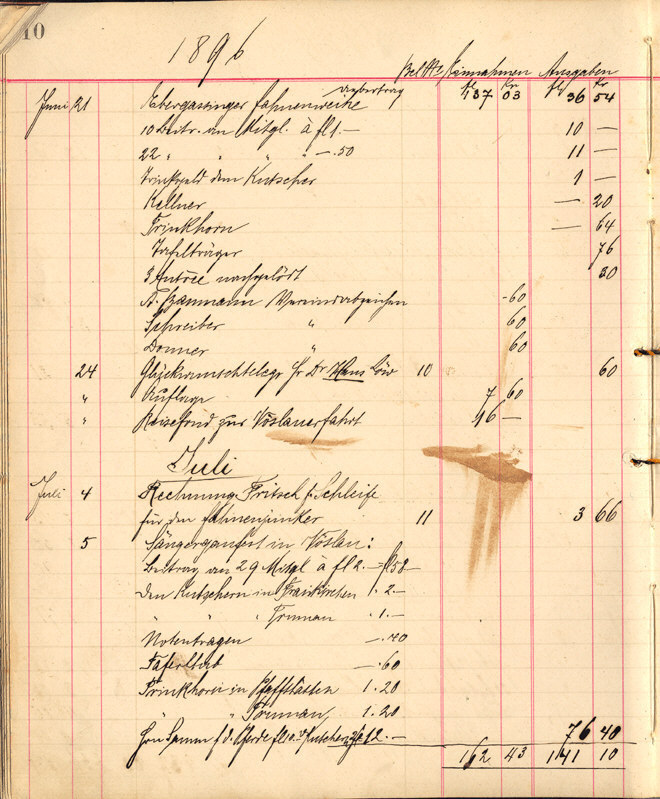 10
1896
Bel. No Einnahmen Ausgaben
fl Kr fl Kr
Übertrag 137 03 36 54
Juni 21 Ebergassinger Fahnenweihe
10 Beitr. an Mitgl. à fl 1.— 10 —
22 " " " " —.50 11 —
Trinkgeld dem Kutscher 1 —
Kellner — 20
Trinkhorn — 64
Tafelträger 76
3 Entrée nachgelöst 20
A. Baumann Vereinsabzeichen -60
Schreiber " 60
Donner " 60
24 Glückwunschtelegr Hr Dr Hans Löw 10 60
" Auflage 7 60
" Reisefond zur Vöslauerfahrt 16 —
Juli
Juli 4 Rechnung Fritsch f. Schleife
für den Fahnenjunker 11 3 66
5 Sängergaufest in Vöslau:
Beitrag an 29 Mitgl à fl 2.— fl 58.—
Den Kutschern in Traiskirchen 1. 2.—
" " " Trumau " .1.—
Notentragen —.40
Taferlbub —.60
Trinkhorn in Pfaffstätten 1.20
" " Trumau 1.20
Hrn f. d. Pferde 12.— 76 40
162 43 141 10